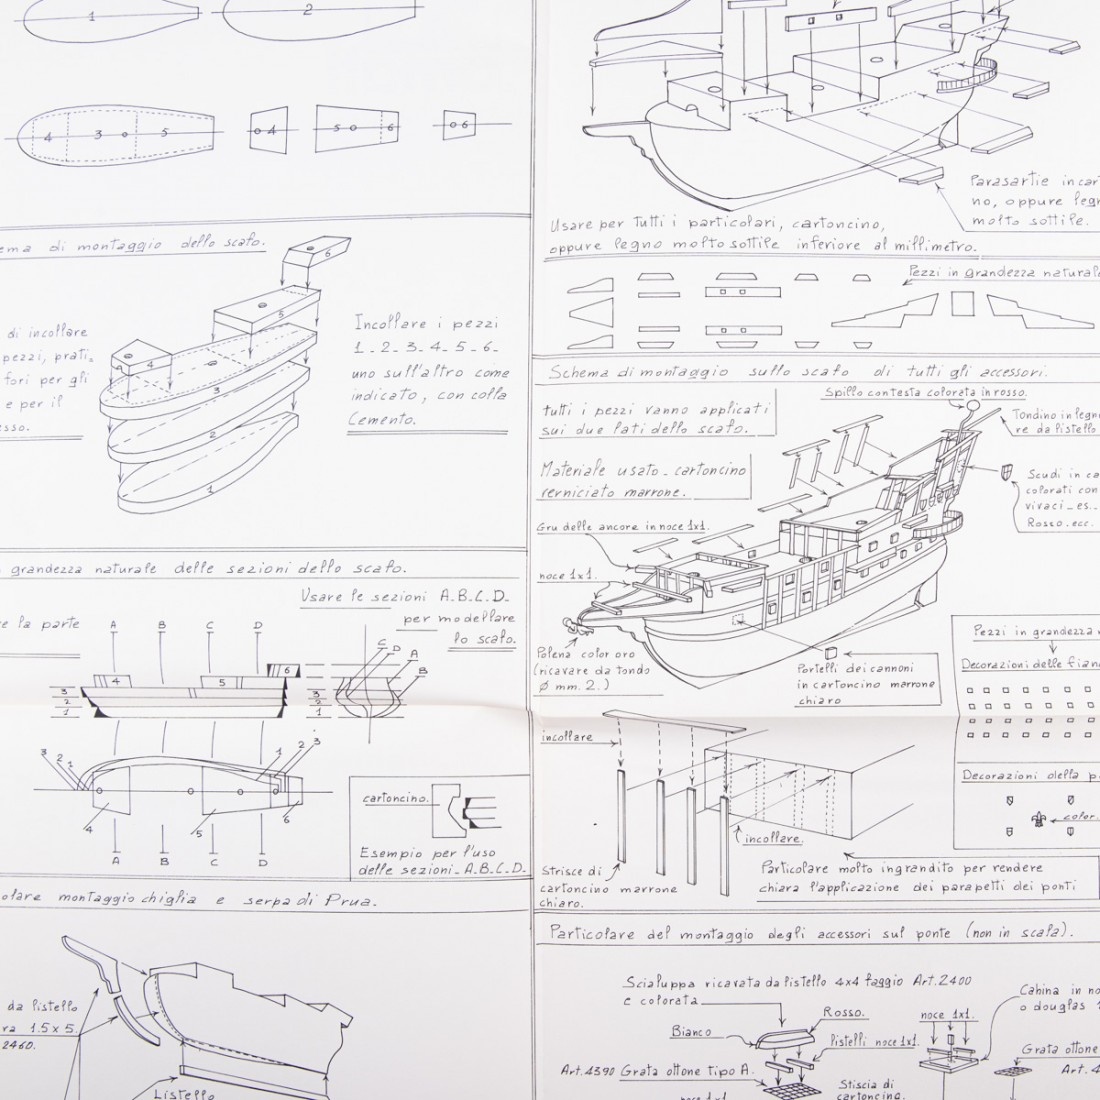 1
2
4 3 5
4
5 6
6
ema di montaggio dello scafo.
6
5
4
3
2
1
di incollare
pezzi, prati.
fori per gli
e per il
esso.
Incollare i pezzi
1_2_3_4_5_6_
uno sull'altro come
indicato, con colla
Cemento.
grandezza naturale delle sezioni dello scafo.
Usare le sezioni A.B.C.D.
per modellare
lo scafo.
re la parte
A B C D
C D A B
4 5 6
3
2
1
3
2
1
3 2 1
1 2 3
4 5 6
A B C D
cartoncino.
Esempio per l'uso
delle sezioni_A.B.C.D.
olare montaggio chiglia e serpa di Prua.
da listello
ra 1.5x5.
2460.
Listello
Parasartie in car
no, oppure legn
molto sottile.
Usare per tutti i particolari, cartoncino,
oppure legno molto sottile inferiore al millimetro.
Pezzi in grandezza natural
Schema di montaggio sullo scafo di tutti gli accessori.
Spillo con testa colorata in rosso.
tutti i pezzi vanno applicati
sui due lati dello scafo.
Tondino in legn
re da listello
Materiale usato_cartoncino
verniciato marrone.
Scudi in ca
colorati con
vivaci_es._
Rosso.ecc.
Gru delle ancore in noce 1x1.
noce 1x1.
Polena color oro
(ricavare da tondo
Ø mm. 2.)
Portelli dei cannoni
in cartoncino marrone
chiaro
Pezzi in grandezza n
Decorazioni delle fian
Decorazioni della p
color.
incollare
incollare.
Strisce di
cartoncino marrone
chiaro.
Particolare molto ingrandito per rendere
chiara l'applicazione dei parapetti dei ponti
Particolare del montaggio degli accessori sul ponte (non in scala).
Scialuppa ricavata da listello 4x4 faggio Art.2400
e colorata
Rosso.
Bianco
listelli noce 1x1.
Art.4390 Grata ottone tipo A.
noce 1x1
Stiscia di
cartoncino.
noce 1x1.
Cabina in no
o douglas
Grata ottone
Art.4